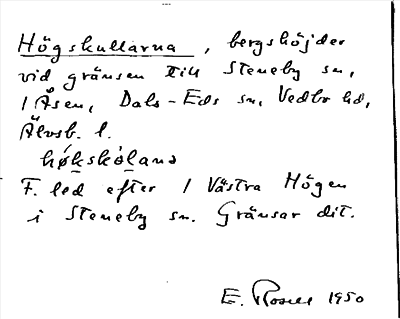 Högskullarna, bergshöjder
vid gränsen till Steneby sn,
1 Åsen, Dals-Eds sn, Vedbo hd,
Älvsb. l.
hø̀kskɵ̀lana
F. led efter 1 Västra Högen
i Steneby sn. Gränsar dit.
E. Rosell 1950